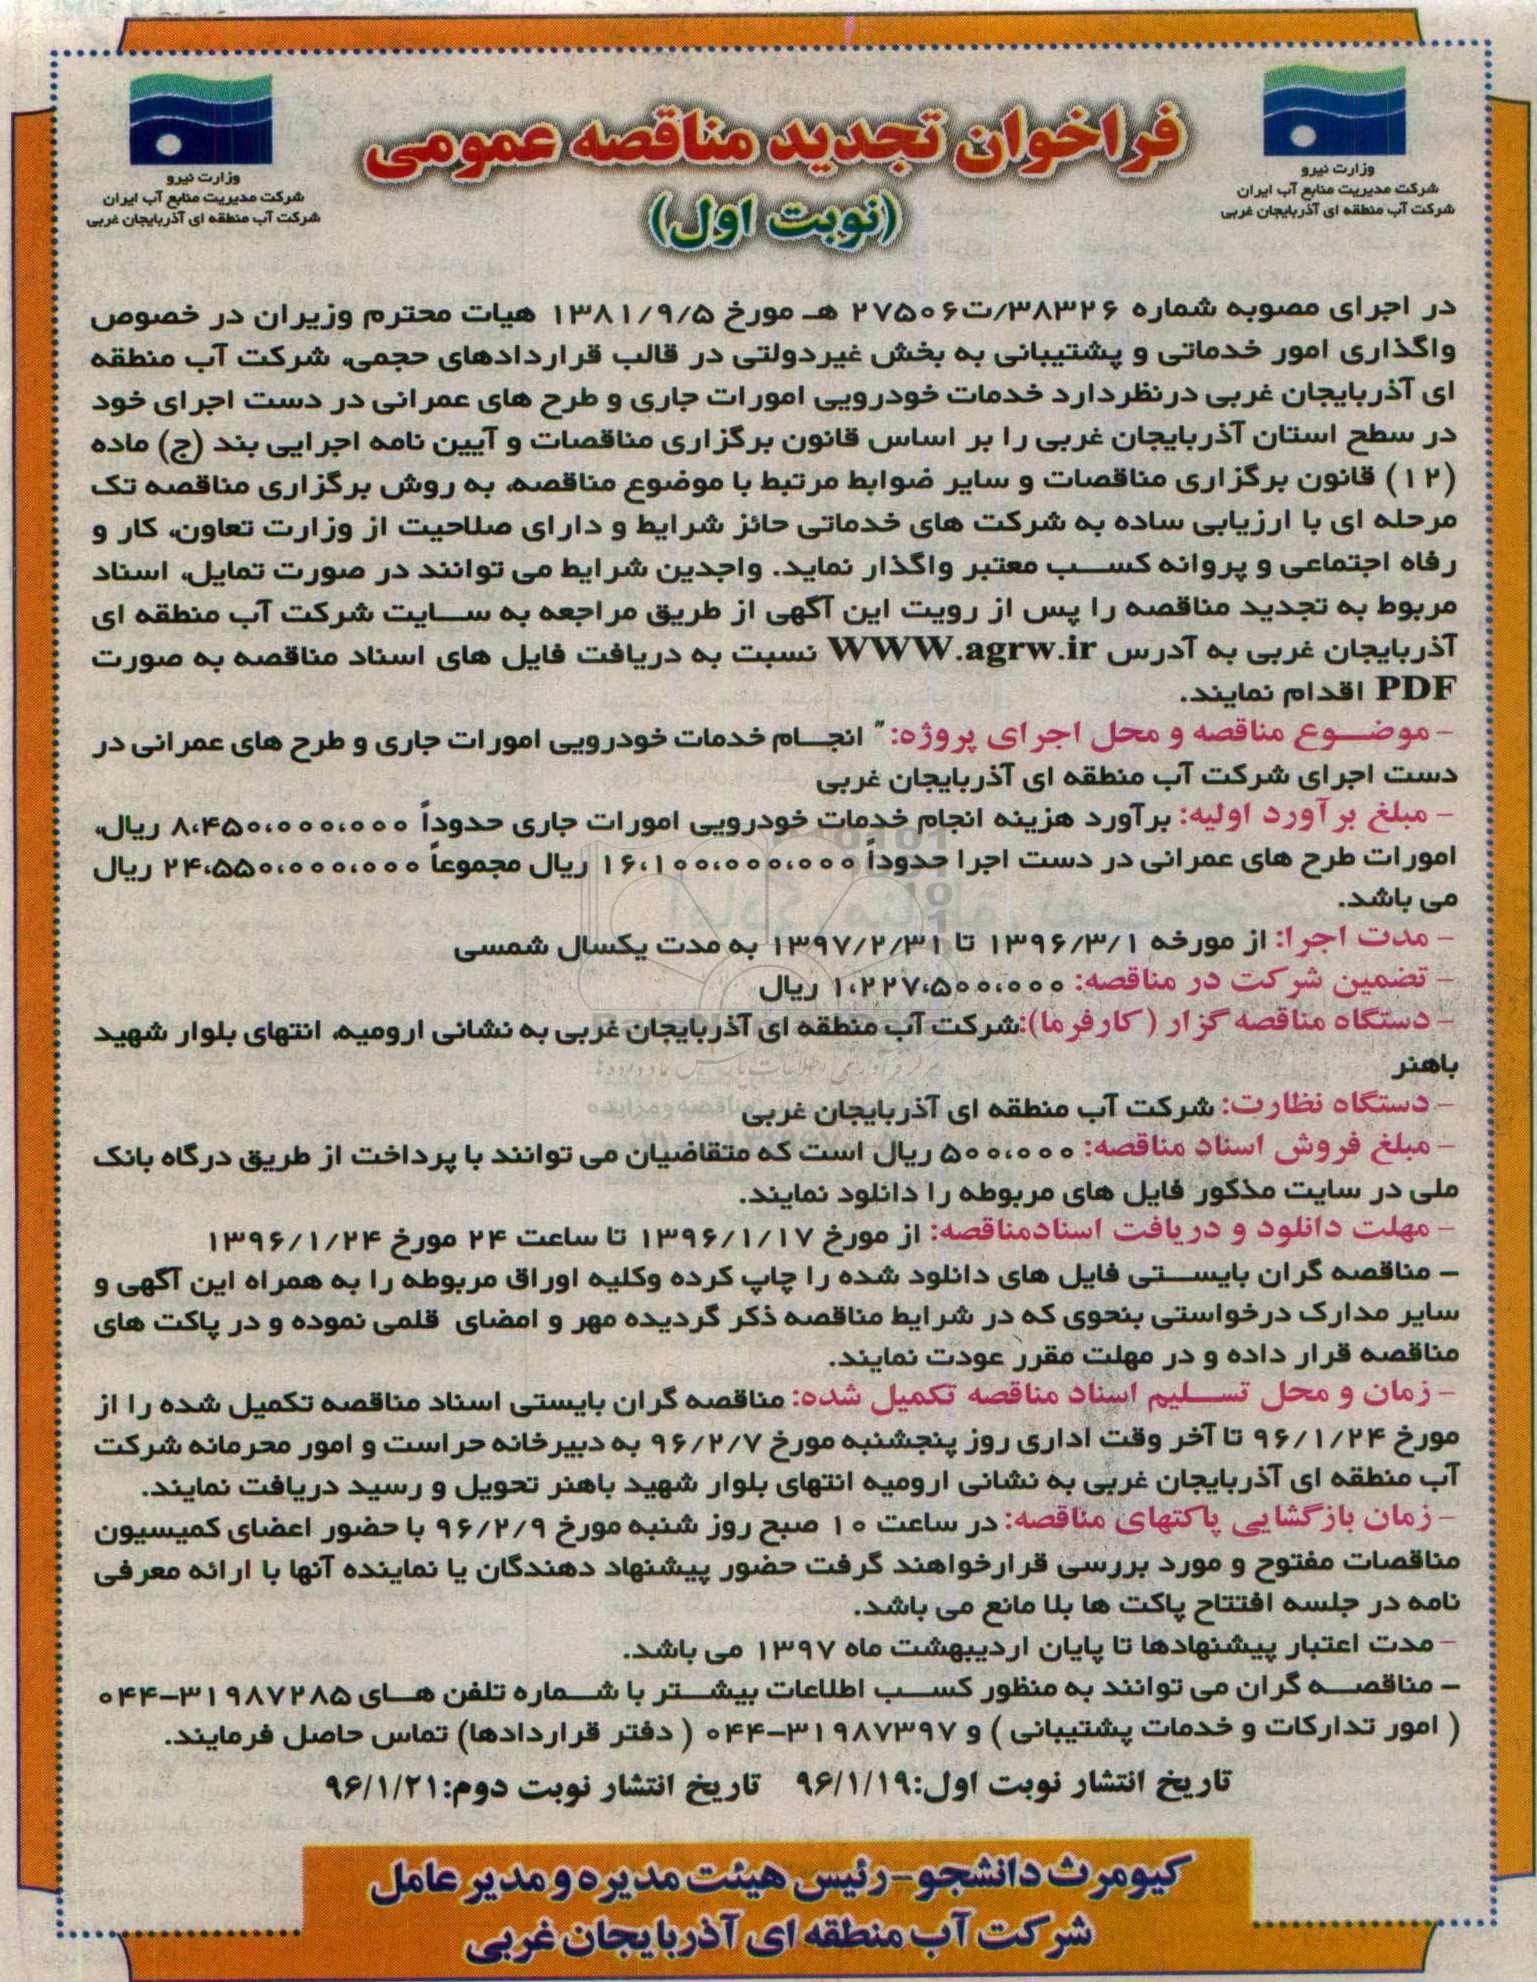 فراخوان تجدید مناقصه عمومی
(نوبت اول)
وزارت نیرو
شرکت مدیریت منابع آب ایران
شرکت آب منطقه ای آذربایجان غربی
وزارت نیرو
شرکت مدیریت منابع آب ایران
شرکت آب منطقه ای آذربایجان غربی
در اجرای مصوبه شماره ۳۸۳۲۶/ت۲۷۵۰۶ هـ مورخ ۱۳۸۱/۹/۵ هیات محترم وزیران در خصوص
واگذاری امور خدماتی و پشتیبانی به بخش غیردولتی در قالب قراردادهای حجمی، شرکت آب منطقه
ای آذربایجان غربی درنظردارد خدمات خودرویی امورات جاری و طرح های عمرانی در دست اجرای خود
در سطح استان آذربایجان غربی را بر اساس قانون برگزاری مناقصات و آیین نامه اجرایی بند (ج) ماده
(۱۲) قانون برگزاری مناقصات و سایر ضوابط مرتبط با موضوع مناقصه، به روش برگزاری مناقصه تک
مرحله ای با ارزیابی ساده به شرکت های خدماتی حائز شرایط و دارای صلاحیت از وزارت تعاون، کار و
رفاه اجتماعی و پروانه کسب معتبر واگذار نماید. واجدین شرایط می توانند در صورت تمایل، اسناد
مربوط به تجدید مناقصه را پس از رویت این آگهی از طریق مراجعه به سایت شرکت آب منطقه ای
آذربایجان غربی به آدرس WWW.agrw.ir نسبت به دریافت فایل های اسناد مناقصه به صورت
PDF اقدام نمایند.
- موضوع مناقصه و محل اجرای پروژه: " انجام خدمات خودرویی امورات جاری و طرح های عمرانی در
دست اجرای شرکت آب منطقه ای آذربایجان غربی
- مبلغ برآورد اولیه: برآورد هزینه انجام خدمات خودرویی امورات جاری حدوداً ۸،۴۵۰،۰۰۰،۰۰۰ ریال،
امورات طرح های عمرانی در دست اجرا حدوداً ۱۶،۱۰۰،۰۰۰،۰۰۰ ریال مجموعاً ۲۴،۵۵۰،۰۰۰،۰۰۰ ریال
می باشد.
- مدت اجرا: از مورخه ۱۳۹۶/۳/۱ تا ۱۳۹۷/۲/۳۱ به مدت یکسال شمسی
- تضمین شرکت در مناقصه: ۱،۲۲۷،۵۰۰،۰۰۰ ریال
- دستگاه مناقصه گزار (کارفرما):شرکت آب منطقه ای آذربایجان غربی به نشانی ارومیه، انتهای بلوار شهید
باهنر
- دستگاه نظارت: شرکت آب منطقه ای آذربایجان غربی
- مبلغ فروش اسناد مناقصه: ۵۰۰،۰۰۰ ریال است که متقاضیان می توانند با پرداخت از طریق درگاه بانک
ملی در سایت مذکور فایل های مربوطه را دانلود نمایند.
- مهلت دانلود و دریافت اسنادمناقصه: از مورخ ۱۳۹۶/۱/۱۷ تا ساعت ۲۴ مورخ ۱۳۹۶/۱/۲۴
- مناقصه گران بایستی فایل های دانلود شده را چاپ کرده وکلیه اوراق مربوطه را به همراه این آگهی و
سایر مدارک درخواستی بنحوی که در شرایط مناقصه ذکر گردیده مهر و امضای قلمی نموده و در پاکت های
مناقصه قرار داده و در مهلت مقرر عودت نمایند.
- زمان و محل تسلیم اسناد مناقصه تکمیل شده: مناقصه گران بایستی اسناد مناقصه تکمیل شده را از
مورخ ۹۶/۱/۲۴ تا آخر وقت اداری روز پنجشنبه مورخ ۹۶/۲/۷ به دبیرخانه حراست و امور محرمانه شرکت
آب منطقه ای آذربایجان غربی به نشانی ارومیه انتهای بلوار شهید باهنر تحویل و رسید دریافت نمایند.
- زمان بازگشایی پاکتهای مناقصه: در ساعت ۱۰ صبح روز شنبه مورخ ۹۶/۲/۹ با حضور اعضای کمیسیون
مناقصات مفتوح و مورد بررسی قرارخواهند گرفت حضور پیشنهاد دهندگان یا نماینده آنها با ارائه معرفی
نامه در جلسه افتتاح پاکت ها بلا مانع می باشد.
- مدت اعتبار پیشنهادها تا پایان اردیبهشت ماه ۱۳۹۷ می باشد.
- مناقصه گران می توانند به منظور کسب اطلاعات بیشتر با شماره تلفن های ۳۱۹۸۷۲۸۵-۰۴۴
( امور تدارکات و خدمات پشتیبانی ) و ۳۱۹۸۷۳۹۷-۰۴۴ ( دفتر قراردادها) تماس حاصل فرمایند.
تاریخ انتشار نوبت اول:۹۶/۱/۱۹ تاریخ انتشار نوبت دوم:۹۶/۱/۲۱
کیومرث دانشجو-رئیس هیئت مدیره و مدیر عامل
شرکت آب منطقه ای آذربایجان غربی